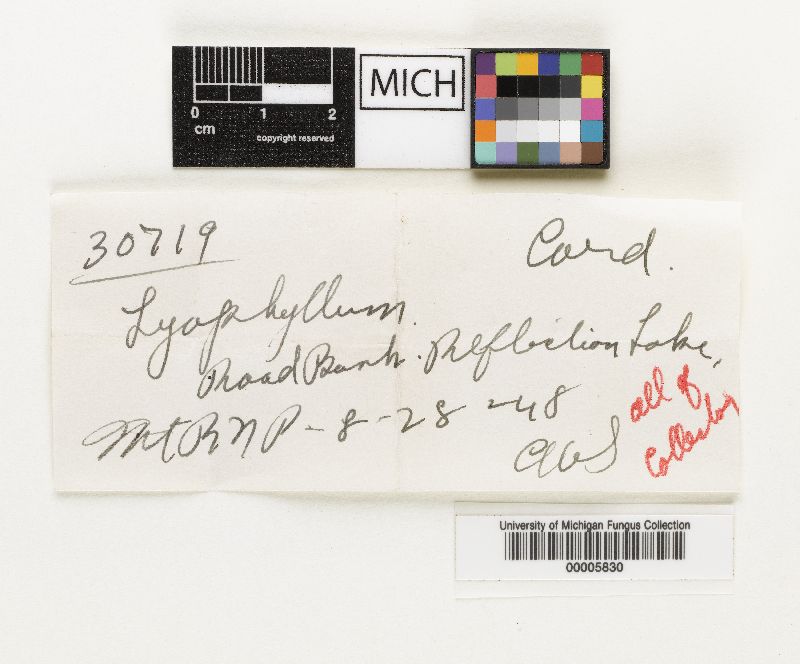 0 1 2
cm
copyright reserved
MICH
30719
Cord.
Lyophyllum.
Road Bank. Reflection Lake,
Mt R N P - 8 - 28 - 48
AHS
all of
Collection
University of Michigan Fungus Collection
00005830